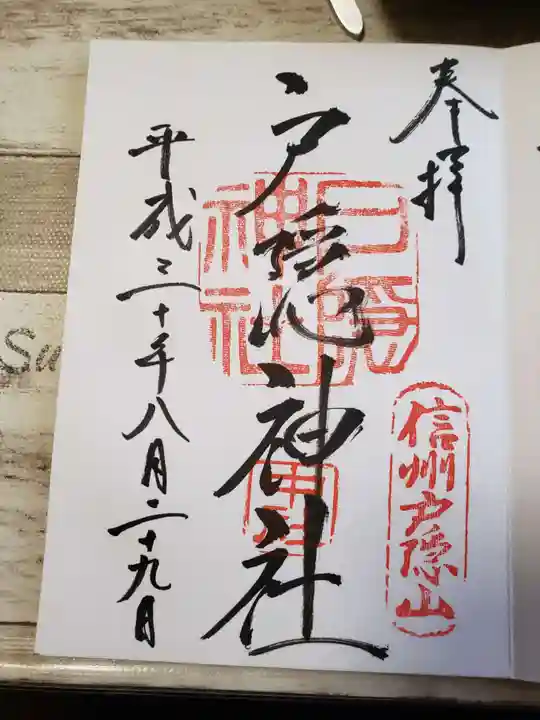 奉拝
信州戸隠山
戸隠神社
戸隠
神社
平成三十年八月二十九日
Su